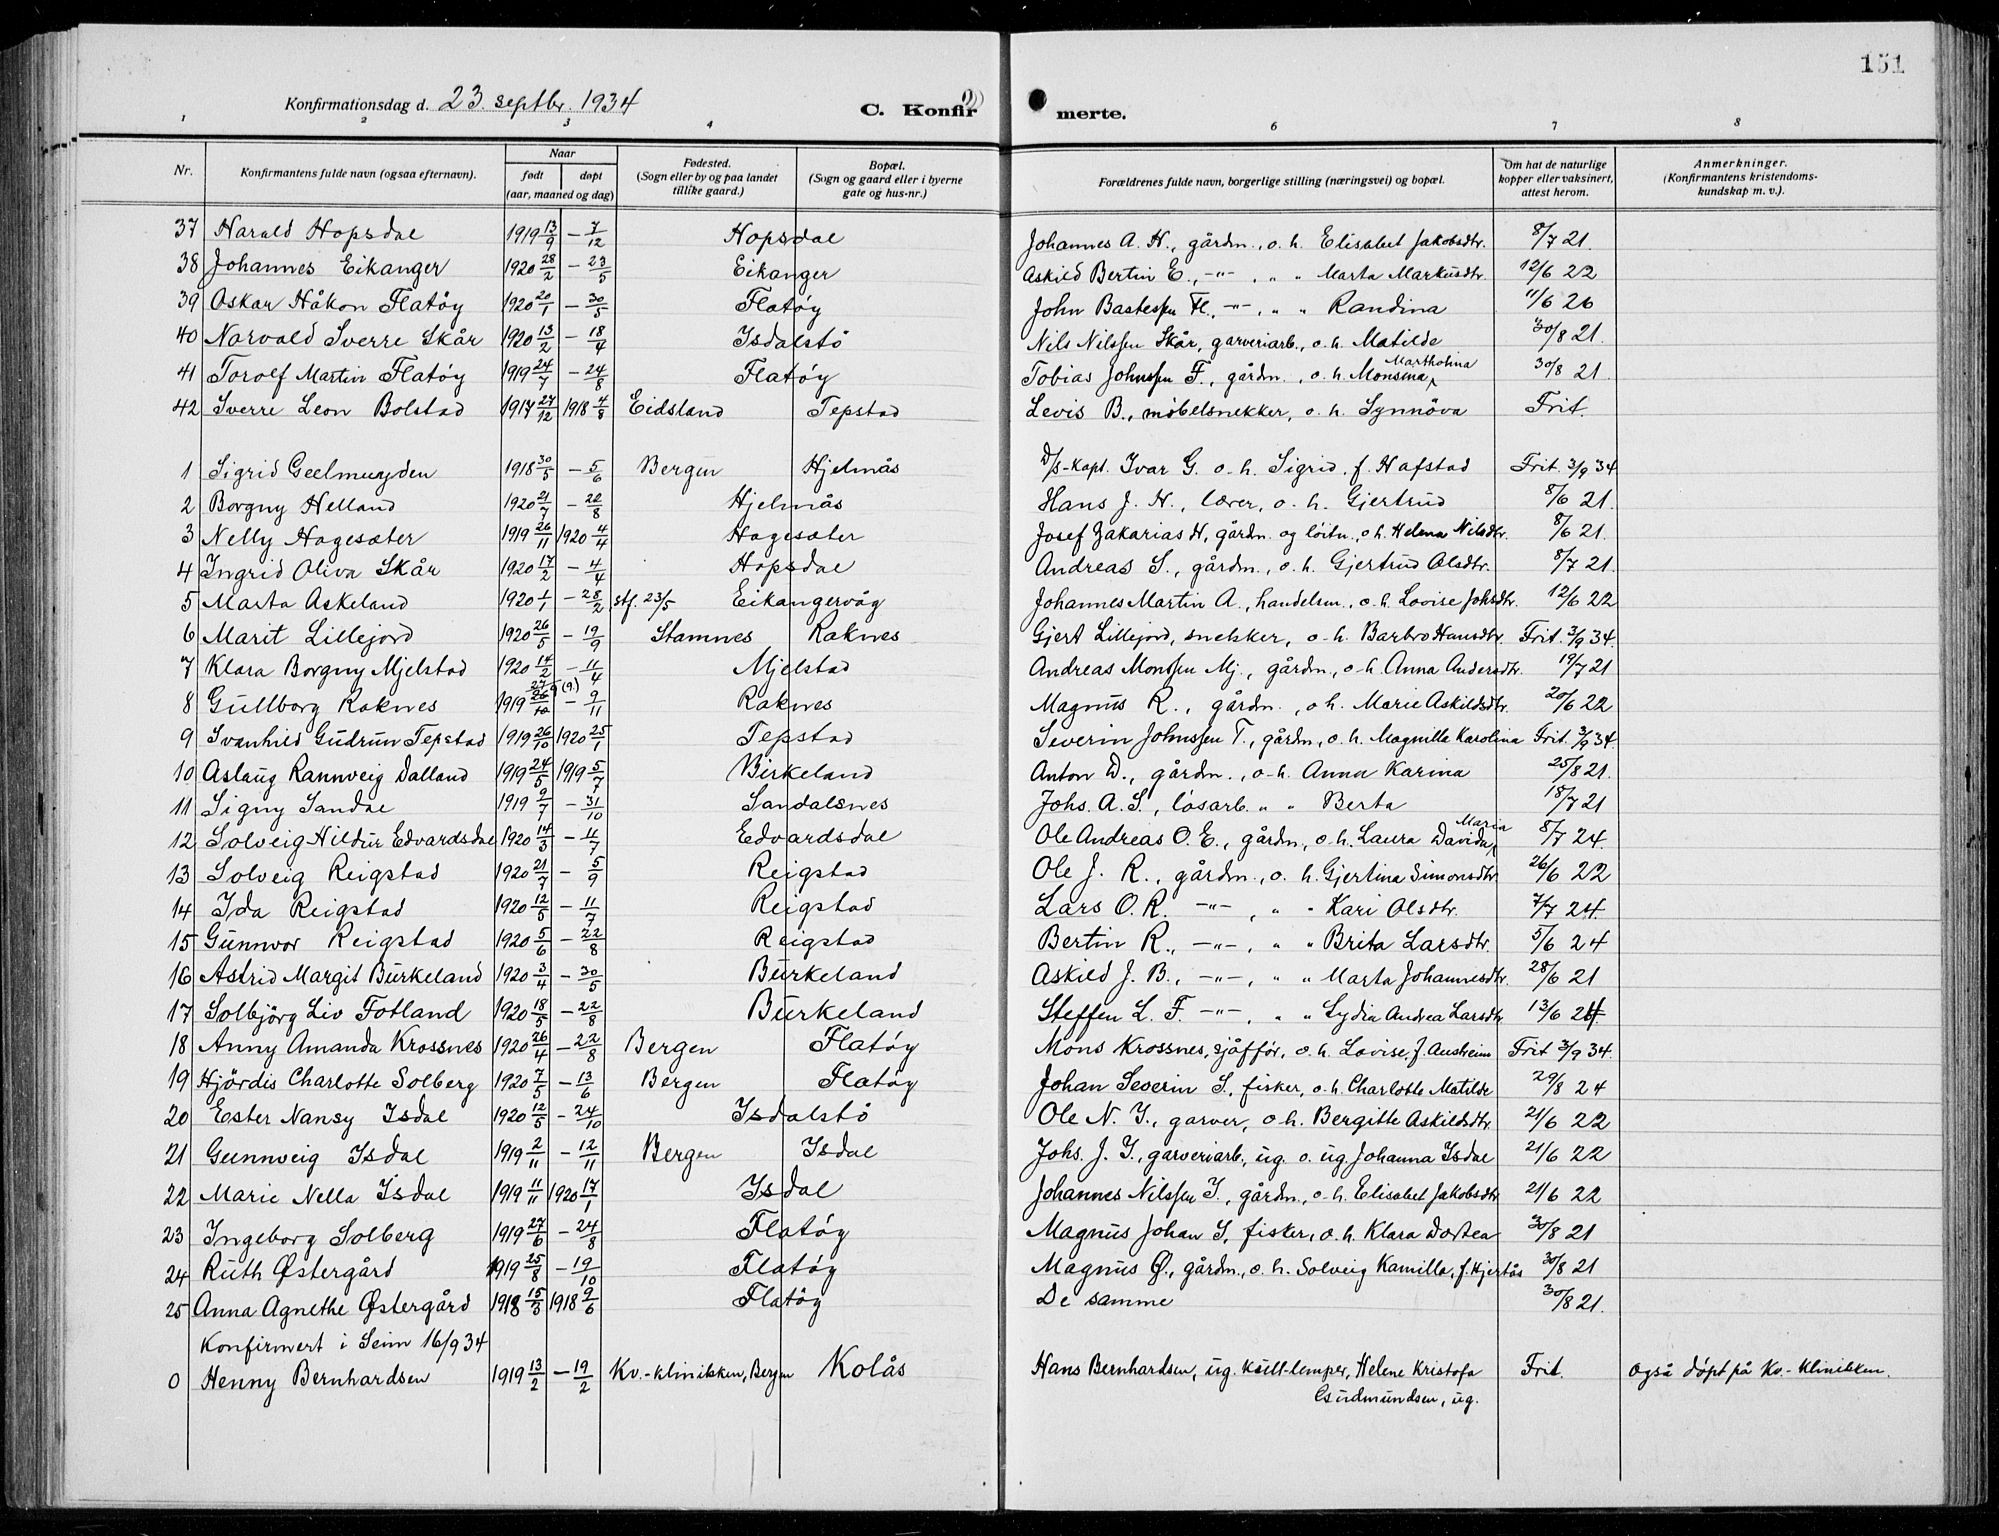 151
Konfirmationsdag d. 23. septbr. 1934
C. Konfirmerte.
1 2 3 4 6 7 8
Nr. Konfirmantens fulde navn (ogsaa efternavn). Naar født døpt (aar, maaned og dag) Fødested. (Sogn eller by og paa landet tillike gaard.) Bopæl. (Sogn og gaard eller i byerne gate og hus-nr.) Forældrenes fulde navn, borgerlige stilling (næringsvei) og bopæl. Om hat de naturlige kopper eller vaksinert, attest herom. Anmerkninger. (Konfirmantens kristendomskundskap m. v.).
37 Harald Hopsdal 1919 13/9 – 7/12 Hopsdal Johannes A. H., gårdm., o. h. Elisabet Jakobsdtr. 8/7 21.
38 Johannes Eikanger 1920 28/2 – 23/5 Eikanger Askild Bertin E., –"–, " " Marta Markusdtr. 12/6 22
39 Oskar Håkon Flatøy 1920 20/1 – 30/5 Flatøy John Bastessen Fl., –"–, " " Randina 11/6 26
40 Norvald Sverre Skår 1920 13/2 – 18/4 Isdalstö Nils Nilssen Skår, garveriarb., o. h. Matilde 30/8 21.
41 Torolf Martin Flatøy 1919 24/7 – 24/8 Flatøy Tobias Johnssen F., gårdm., o. h. Monsina Martholina 30/8 21.
42 Sverre Leon Bolstad 1917 27/12 1918 4/8 Eidsland Tepstad Levis B., möbelsnekker, o. h. Synnöva Frit.
1 Sigrid Geelmuyden 1918 30/5 – 5/6 Bergen Hjelmås D/s-kapt. Ivar G. o. h. Sigrid, f. Hafstad Frit. 3/9 34
2 Borgny Helland 1920 21/7 – 22/8 Hjelmås Hans J. H., lærer, o. h. Gjertrud 8/6 21.
3 Nelly Hagesæter 1919 26/11 1920 4/4 Hagesæter Josef Zakarias H, gårdm. og löitn., o h. Helena Nilsdtr. 8/6 21.
4 Ingrid Oliva Skår 1920 17/2 – 4/4 Hopsdal Andreas S., gårdm., o. h. Gjertrud Olsdtr. 8/7 21.
5 Marta Askeland 1920 1/1 – 28/2 stf. 23/5 Eikangervåg Johannes Martin A., handelsm., o. h. Lovise Johsdtr. 12/6 22
6 Marit Lillejord 1920 26/5 – 19/9 Stamnes Raknes Gjert Lillejord, snekker, o. h. Barbro Hansdtr. Frit. 3/9 34.
7 Klara Borgny Mjelstad 1920 14/2 – 11/4 Mjelstad Andreas Monssen Mj., gårdm., o. h. Anna Andersdtr. 19/7 21
8 Gullborg Raknes 1919 27/9 (9.) – 9/11 Raknes Magnus R., gårdm., o h. Marie Askildsdtr. 20/6 22
9 Svanhild Gudrun Tepstad 1919 26/10 1920 25/1 Tepstad Severin Johnssen T., gårdm., o. h. Magnilla Karolina Frit. 3/9 34.
10 Aslaug Rannveig Dalland 1919 24/5 1919 5/7 Birkeland Anton D., gårdm., o. h. Anna Karina 25/8 21.
11 Signy Sandal 1919 9/7 – 31/10 Sandalsnes Johs. A. S., lösarb. " " Berta 18/7 21
12 Solveig Hildur Edvardsdal 1920 14/3 – 11/7 Edvardsdal Ole Andreas O. E., gårdm., o. h. Laura Davida Maria 8/7 24.
13 Solveig Reigstad 1920 21/7 – 5/9 Reigstad Ole J. R., gårdm., o. h. Gjertina Simonsdtr 26/6 22
14 Ida Reigstad 1920 12/5 – 11/7 Reigstad Lars O. R. –"–, " " Kari Olsdtr. 7/7 24
15 Gunnvor Reigstad 1920 5/6 – 22/8 Reigstad Bertin R., –"–, " " Brita Larsdtr. 5/6 24
16 Astrid Margit Burkeland 1920 3/4 – 30/5 Burkeland Askild J. B., –"–, " " Marta Johannesdtr. 28/6 21
17 Solbjörg Liv Fotland 1920 18/5 – 22/8 Burkeland Steffen L. F. –"–, " " Lydia Andrea Larsdtr 13/6 24.
18 Anny Amanda Krossnes 1920 26/4 – 22/8 Bergen Flatøy Mons Krossnes, sjåfför, o. h. Lovise, f. Ausheim Frit 3/9 34.
19 Hjördis Charlotte Solberg 1920 7/5 – 13/6 Bergen Flatøy Johan Severin S., fisker, o. h. Charlotte Matilde 29/8 24
20 Ester Nansy Isdal 1920 12/5 – 24/10 Isdalstö Ole N. I., garver, o. h. Bergitte Askildsdtr. 21/6 22
21 Gunnveig Isdal 1919 2/11 – 12/11 Bergen Isdal Johs. J. I., garveriarb., ug. o. ug. Johanna Isdal 21/6 22
22 Marie Nella Isdal 1919 11/11 1920 17/1 Isdal Johannes Nilssen I., gårdm., o. h. Elisabet Jakobsdtr 21/6 22
23 Ingeborg Solberg 1919 27/6 – 24/8 Flatøy Magnus Johan S, fisker, o. h. Klara Dortea 30/8 21
24 Ruth Østergård 1919 25/8 – 19/10 Flatøy Magnus Ø., gårdm., o. h. Solveig Kamilla, f. Hjertås 30/8 21
25 Anna Agnethe Østergård 1918 15/3 1918 9/6 Flatøy De samme 30/8 21.
Konfirmert i Seim 16/9 34
0 Henny Bernhardsen 1919 13/2 – 19/2 Kv.-klinikken, Bergen Kolås Hans Bernhardsen, ug. kull-lemper, Helene Kristofa Gudmundsen, ug. Frit. Også döpt på Kv.-klinikken.